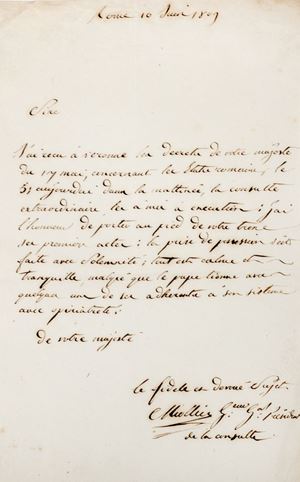 Rome 10 Juin 1809
Sire
J'ai recu à les decrets de votre majesté
du 17 mai, concernant les Etats romains, le
aujourdui dans la matinée, la consulte
extraordinaire les a mis a execution: j'ai
l'honneur de porter au pied de votre trone
ses premiers actes: la prise de possession s'est
faite avec solemnité; tout est calme et
tranquille, malgré que le pape tienne avec
quelques uns de ses adherents à son sisteme
avec opiniatreté.
de votre majesté
le fidele et devoué Sujet
Miollis G. Gal President
de la consulte